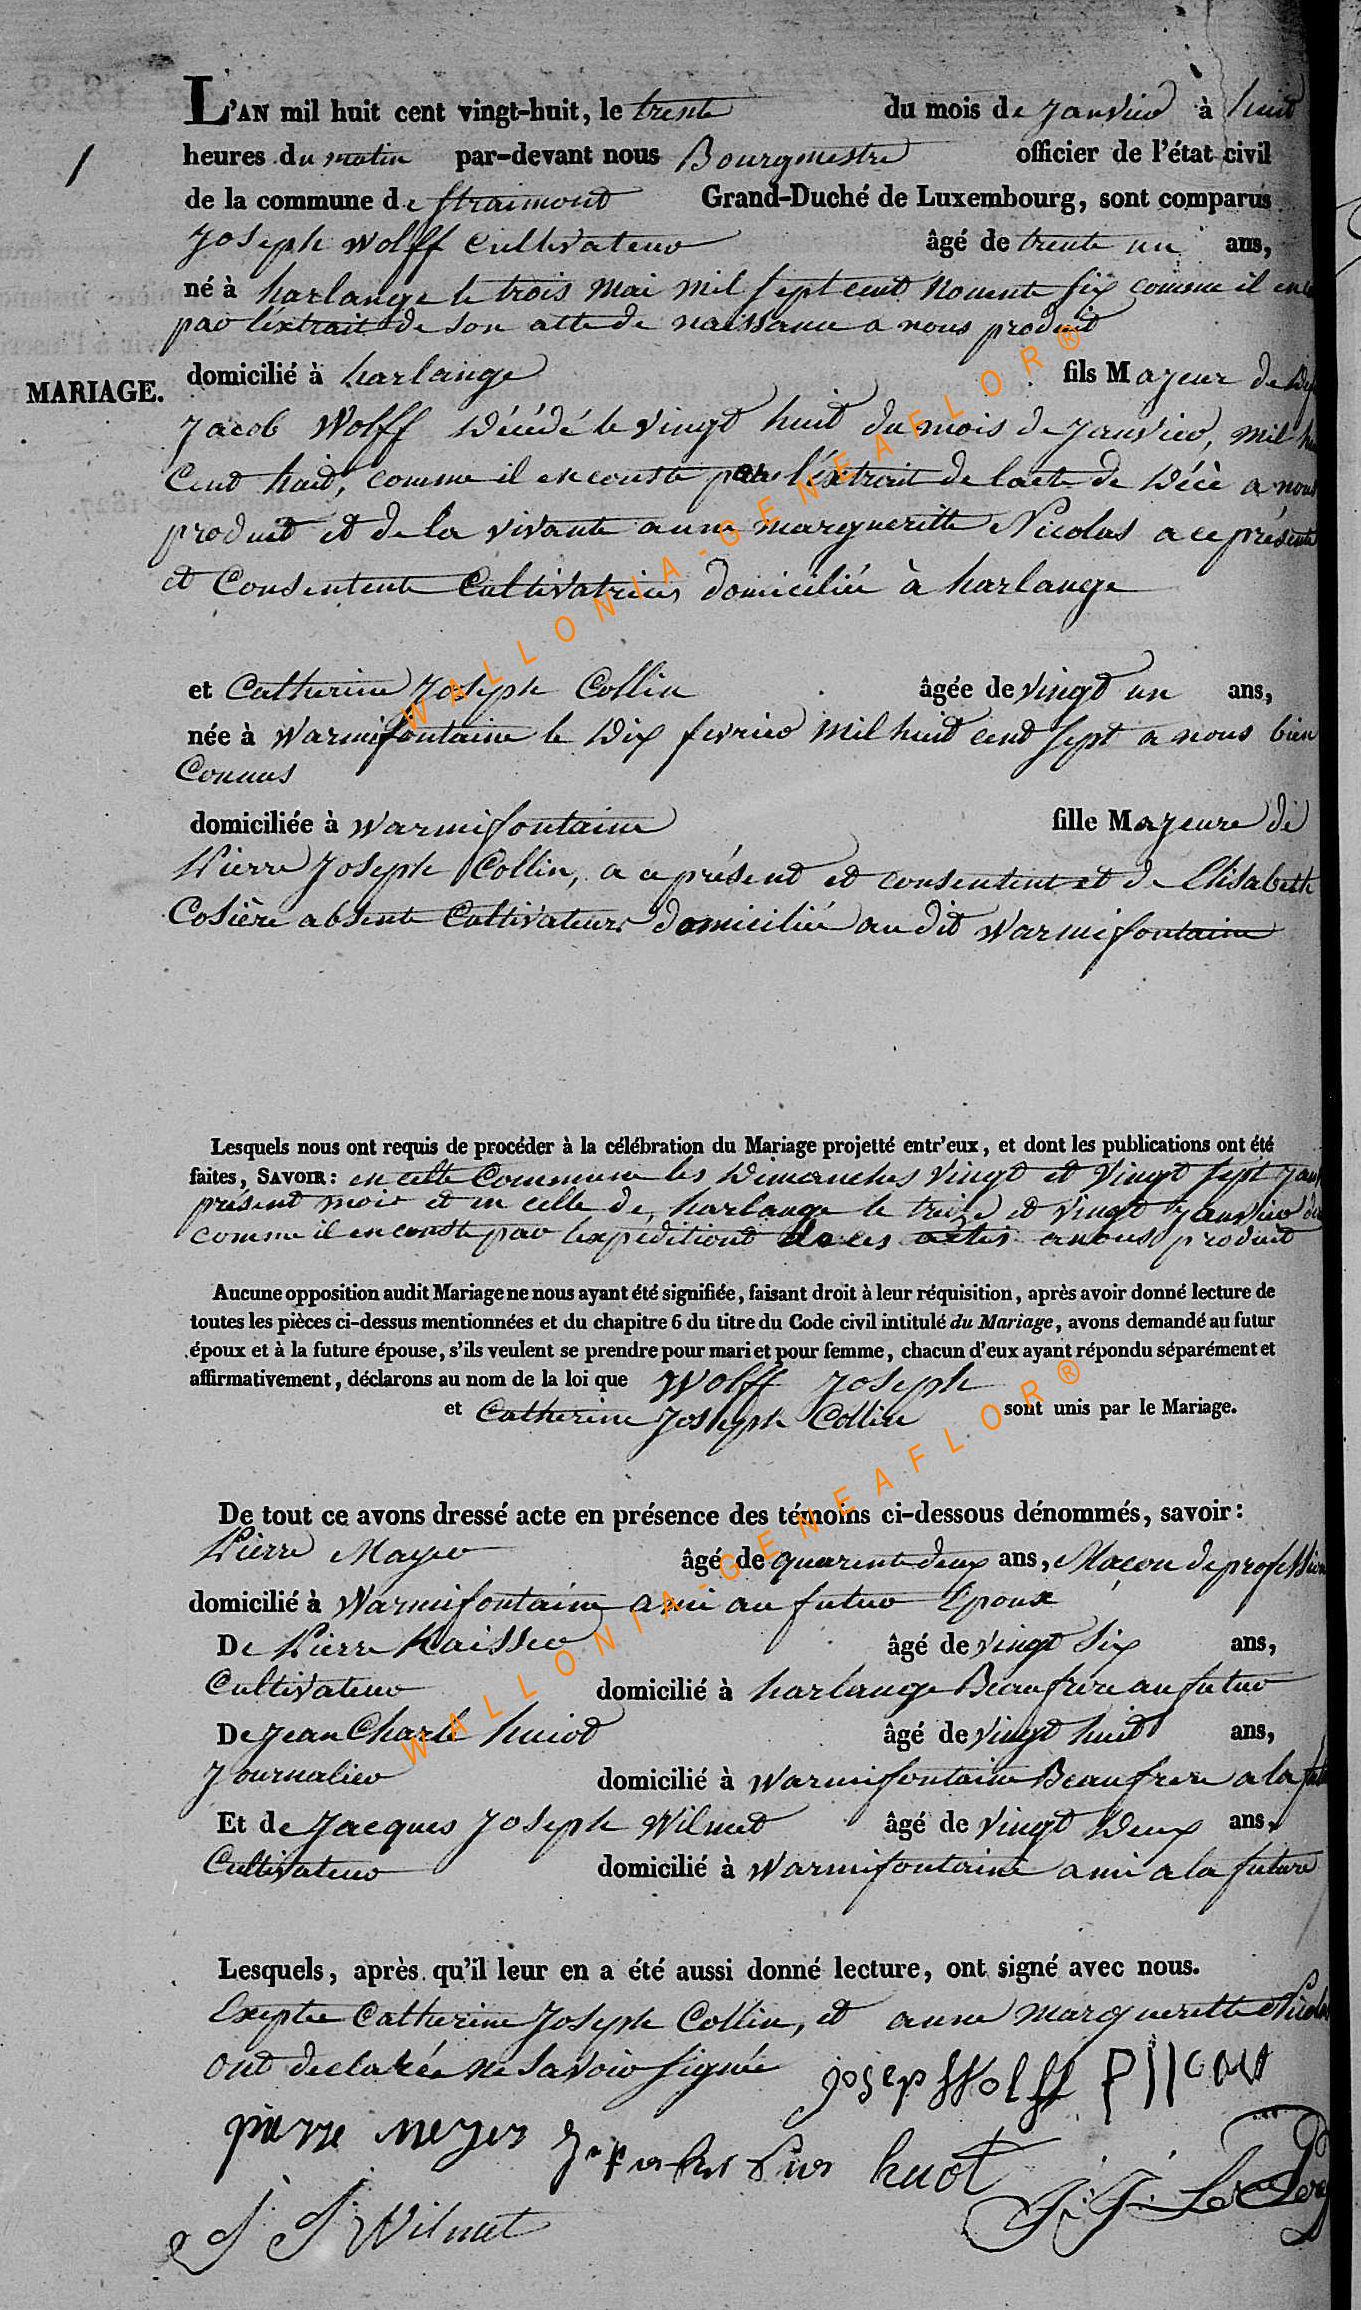 L'AN mil huit cent vingt-huit, le trente du mois de janvier à huit
heures du matin par-devant nous Bourgmestre officier de l'état civil
de la commune de Straimont Grand-Duché de Luxembourg, sont comparus
Joseph Wolff Cultivateur âgé de trente un ans,
né à harlange le trois Mai Mil sept cent Nonente six comme il en
par l'extrait de son acte de naissance a nous produit
MARIAGE.
domicilié à harlange fils Majeur de
Jacob Wolff Décédé le vingt huit du mois de janvier, mil
Cent huit, comme il en conste par l'extrait de lacte de Décè a nous
produit et de la vivante anne margueritte Nicolas a ce présente
et Consentente Cultivatrices domiciliée à harlange
et Catherine Joseph Collin âgée de vingt un ans,
née à Warmifontaine le Dix fevrier Mil huit cent sept a nous bien
Connus
domiciliée à Warmifontaine fille Majeure de
Pierre Joseph Collin, a ce présent et consentent et de Elisabeth
Cosière absente Cultivateurs domiciliée au dit Warmifontaine
Lesquels nous ont requis de procéder à la célébration du Mariage projetté entr'eux, et dont les publications ont été
faites, SAVOIR: en cette Commune les Dimanches Vingt et Vingt sept
présent mois et en celle de harlange le treize et Vingt janvier
comme il en conste par lexpeditiont de ces actes a nous produit
Aucune opposition audit Mariage ne nous ayant été signifiée, faisant droit à leur réquisition, après avoir donné lecture de
toutes les pièces ci-dessus mentionnées et du chapitre 6 du titre du Code civil intitulé du Mariage, avons demandé au futur
époux et à la future épouse, s'ils veulent se prendre pour mari et pour femme, chacun d'eux ayant répondu séparément et
affirmativement, déclarons au nom de la loi que Wolff Joseph
et Catherine Joseph Collin sont unis par le Mariage.
De tout ce avons dressé acte en présence des témoins ci-dessous dénommés, savoir:
Pierre Mayer âgé de quarente deux ans, Maçon de profession
domicilié à Warmifontaine ami au futur Epoux
De Pierre Kaisser âgé de vingt Six ans,
Cultivateur domicilié à harlange Beaufrere au futur
De Jean Charle huiot âgé de vingt huit ans,
Journalier domicilié à Warmifontaine Beaufrere a la
Et de Jacques Joseph Wilmet âgé de Vingt Deux ans,
Cultivateur domicilié à Warmifontaine ami a la future
Lesquels, après qu'il leur en a été aussi donné lecture, ont signé avec nous.
Exeptee Catherine Joseph Collin, et anne Marguerette
ont declarée ne savoir signée
josep Wolff
pierre meyer huot
J J Wilmet
WALLONIA-GENEAFLOR®
WALLONIA-GENEAFLOR®